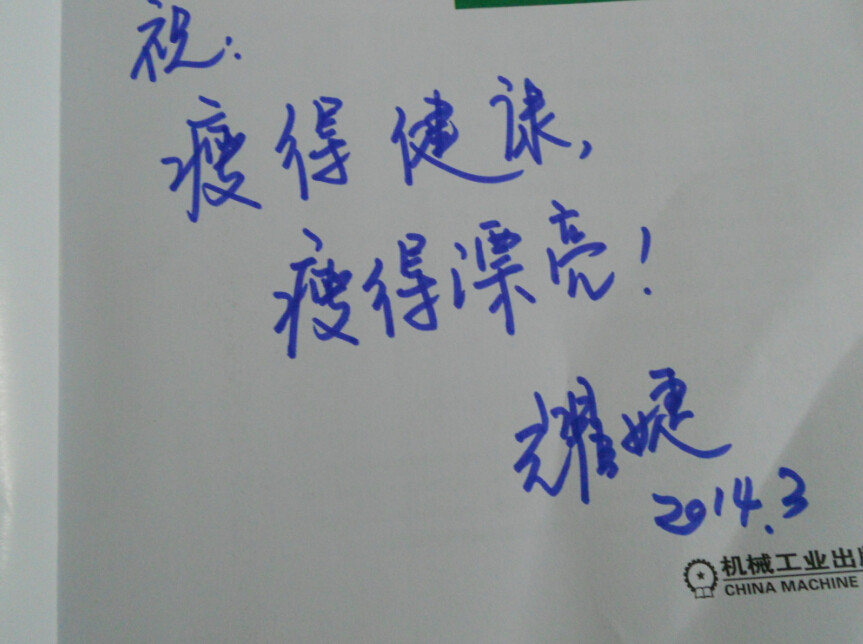 祝:
瘦得健康,
瘦得漂亮!
耀婕
2014.3
机械工业出版
CHINA MACHINE